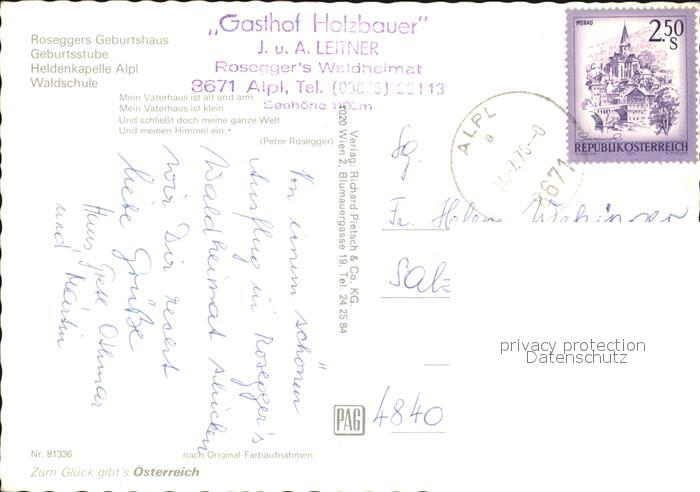 „Gasthof Holzbauer"
J. u. A. LEITNER
Rosegger's Waldheimat
8671 Alpl, Tel.
Seehöhe
Roseggers Geburtshaus
Geburtsstube
Heldenkapelle Alpl
Waldschule
Mein Vaterhaus ist alt und arm
Mein Vaterhaus ist klein
Und schließt doch meine ganze Welt
Und meinen Himmel ein.
(Peter Rosegger)
MURAU
2.50
S
REPUBLIK ÖSTERREICH
ALPL
8671
Verlag: Richard Pietsch & Co. KG.
1020 Wien 2, Blumauergasse 19, Tel. 24 25 84
Von einem schönen
Ausflug in Rosegger's
Waldheimat schicken
wir Dir recht
liebe Grüße
Hans, Othmar
und Martin
Fr.
4840
privacy protection
Datenschutz
PAG
Nr. 81336
nach Original-Farbaufnahmen
Zum Glück gibt's Österreich